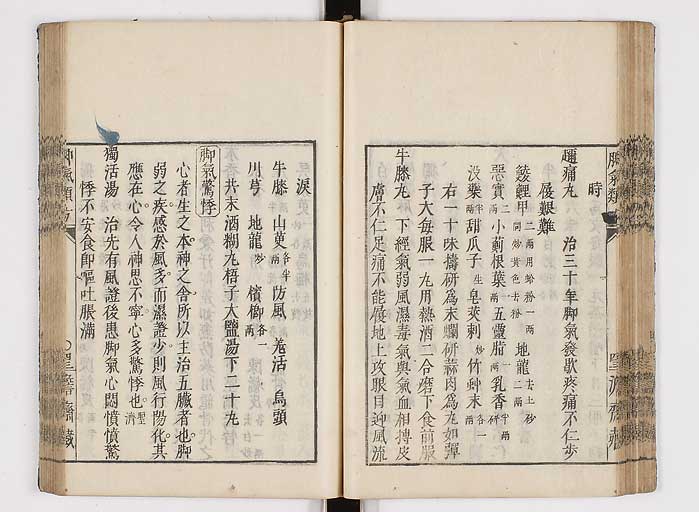 時
趂痛丸　治三十年脚氣發歇疼痛不仁步
履艱難
鯪鯉甲二兩用蛤粉一兩同炒黄色去粉　地龍去土炒二兩
惡實二兩　小薊根葉兩　五靈脂二兩　乳香一兩半研
没藥半兩　甜瓜子生　皂莢刺炒　竹蚛末各一兩
右一十味擣研爲末爛研蒜肉爲丸如彈
子大每服一丸用熱酒二合磨下食前服
牛膝丸　下經氣弱風濕毒氣與氣血相搏皮
膚不仁足痛不能履地上攻眼目迎風流
淚
牛膝　山茰各半兩　防風　羗活　烏頭
川芎　地龍炒　檳榔各一兩
共末酒糊丸梧子大鹽湯下二十丸
脚氣驚悸
心者生之本神之舍所以主治五臟者也脚
弱之疾感於風多而濕證少則風行陽化其
應在心令人神思不寧心多驚悸也聖濟
獨活湯　治先有風證後患脚氣心悶憤憤驚
悸不安食卽嘔吐脹滿
聖濟齋藏